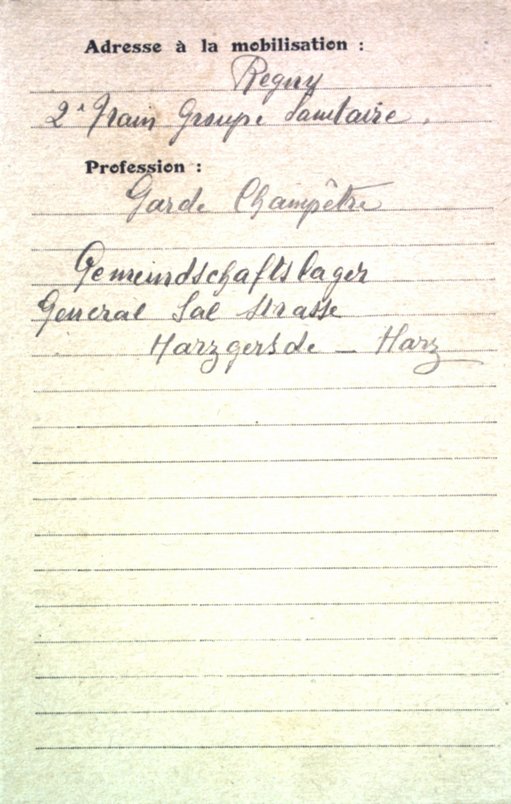 Adresse à la mobilisation :
Regny
2e Train Groupe Sanitaire.
Profession :
Garde Champêtre
Gemeindschaftslager
General Sal Strasse
Harzgersde — Harz